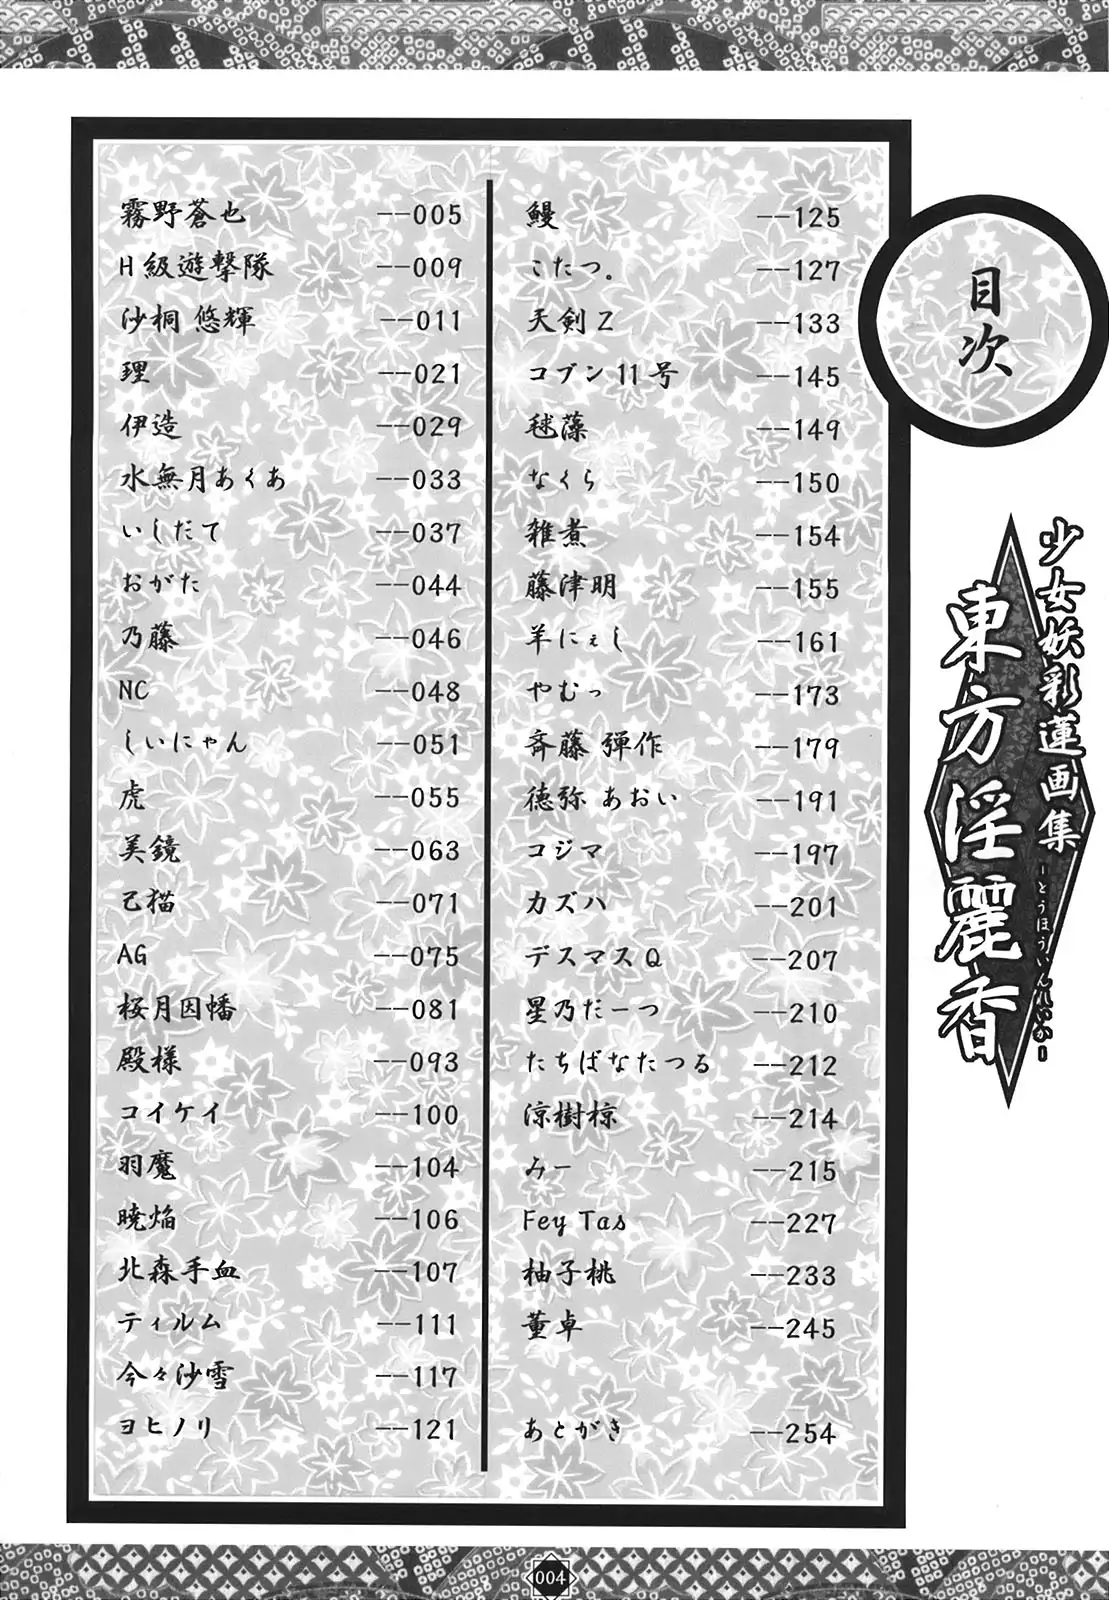 目次
少女妖彩蓮画集
-とうほういんれいか-
東方淫麗香
霧野蒼也 --005
H級遊撃隊 --009
沙桐 悠輝 --011
理 --021
伊造 --029
水無月あくあ --033
いしだて --037
おがた --044
乃藤 --046
NC --048
しいにゃん --051
虎 --055
美鏡 --063
己猫 --071
AG --075
桜月因幡 --081
殿様 --093
コイケイ --100
羽魔 --104
暁焔 --106
北森手血 --107
ティルム --111
今々沙雪 --117
ヨヒノリ --121
鰻 --125
こたつ。 --127
天剣Z --133
コブン11号 --145
毬藻 --149
なくら --150
雑煮 --154
藤津明 --155
羊にぇし --161
やむっ --173
斉藤 弾作 --179
徳弥 あおい --191
コジマ --197
カズハ --201
デスマスQ --207
星乃だーつ --210
たちばなたつる --212
涼樹椋 --214
みー --215
Fey Tas --227
柚子桃 --233
董卓 --245
あとがき --254
004